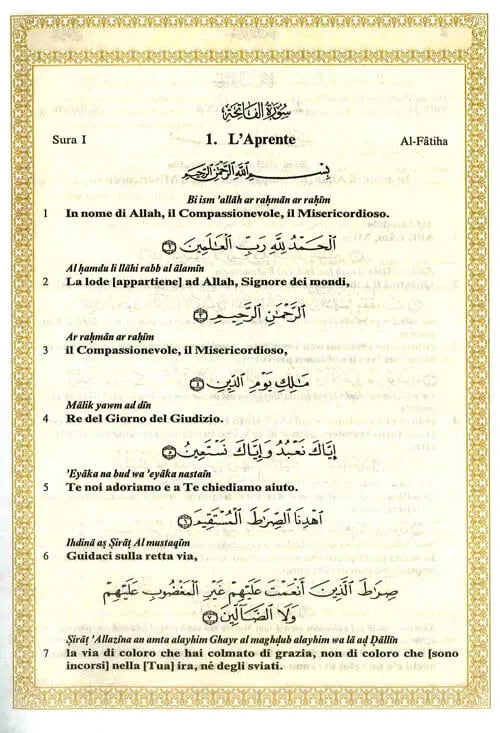 سُورَةُ الفَاتِحَةِ
Sura I 1. L'Aprente Al-Fâtiha
بِسْمِ اللَّهِ الرَّحْمَٰنِ الرَّحِيمِ
Bi ism 'allāh ar raḥmān ar raḥīm
1 In nome di Allah, il Compassionevole, il Misericordioso.
الْحَمْدُ لِلَّهِ رَبِّ الْعَالَمِينَ
Al ḥamdu li llāhi rabb al ālamīn
2 La lode [appartiene] ad Allah, Signore dei mondi,
الرَّحْمَٰنِ الرَّحِيمِ
Ar raḥmān ar raḥīm
3 il Compassionevole, il Misericordioso,
مَالِكِ يَوْمِ الدِّينِ
Mālik yawm ad dīn
4 Re del Giorno del Giudizio.
إِيَّاكَ نَعْبُدُ وَإِيَّاكَ نَسْتَعِينُ
'Eyāka na bud wa 'eyāka nastaīn
5 Te noi adoriamo e a Te chiediamo aiuto.
اهْدِنَا الصِّرَاطَ الْمُسْتَقِيمَ
Ihdinā aṣ Ṣirāṭ Al mustaqīm
6 Guidaci sulla retta via,
صِرَاطَ الَّذِينَ أَنْعَمْتَ عَلَيْهِمْ غَيْرِ الْمَغْضُوبِ عَلَيْهِمْ
وَلَا الضَّالِّينَ
Ṣirāṭ 'Allazīna an amta alayhim Ghayr al maghḍub alayhim wa lā aḍ Ḍallīn
7 la via di coloro che hai colmato di grazia, non di coloro che [sono
incorsi] nella [Tua] ira, né degli sviati.